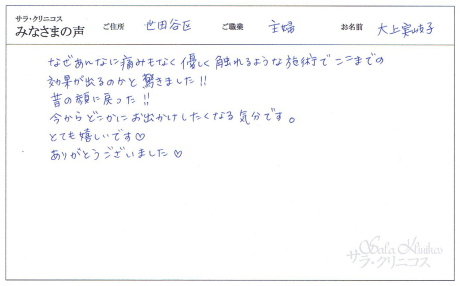 サラ・クリニコス
みなさまの声 ご住所 世田谷区 ご職業 主婦 お名前
なぜあんなに痛みもなく優しく触れるような施術でここまでの
効果が出るのかと驚きました!!
昔の顔に戻った!!
今からどこかにお出かけしたくなる気分です。
とても嬉しいです♡
ありがとうございました♡
Sala Klinikos
サラ・クリニコス